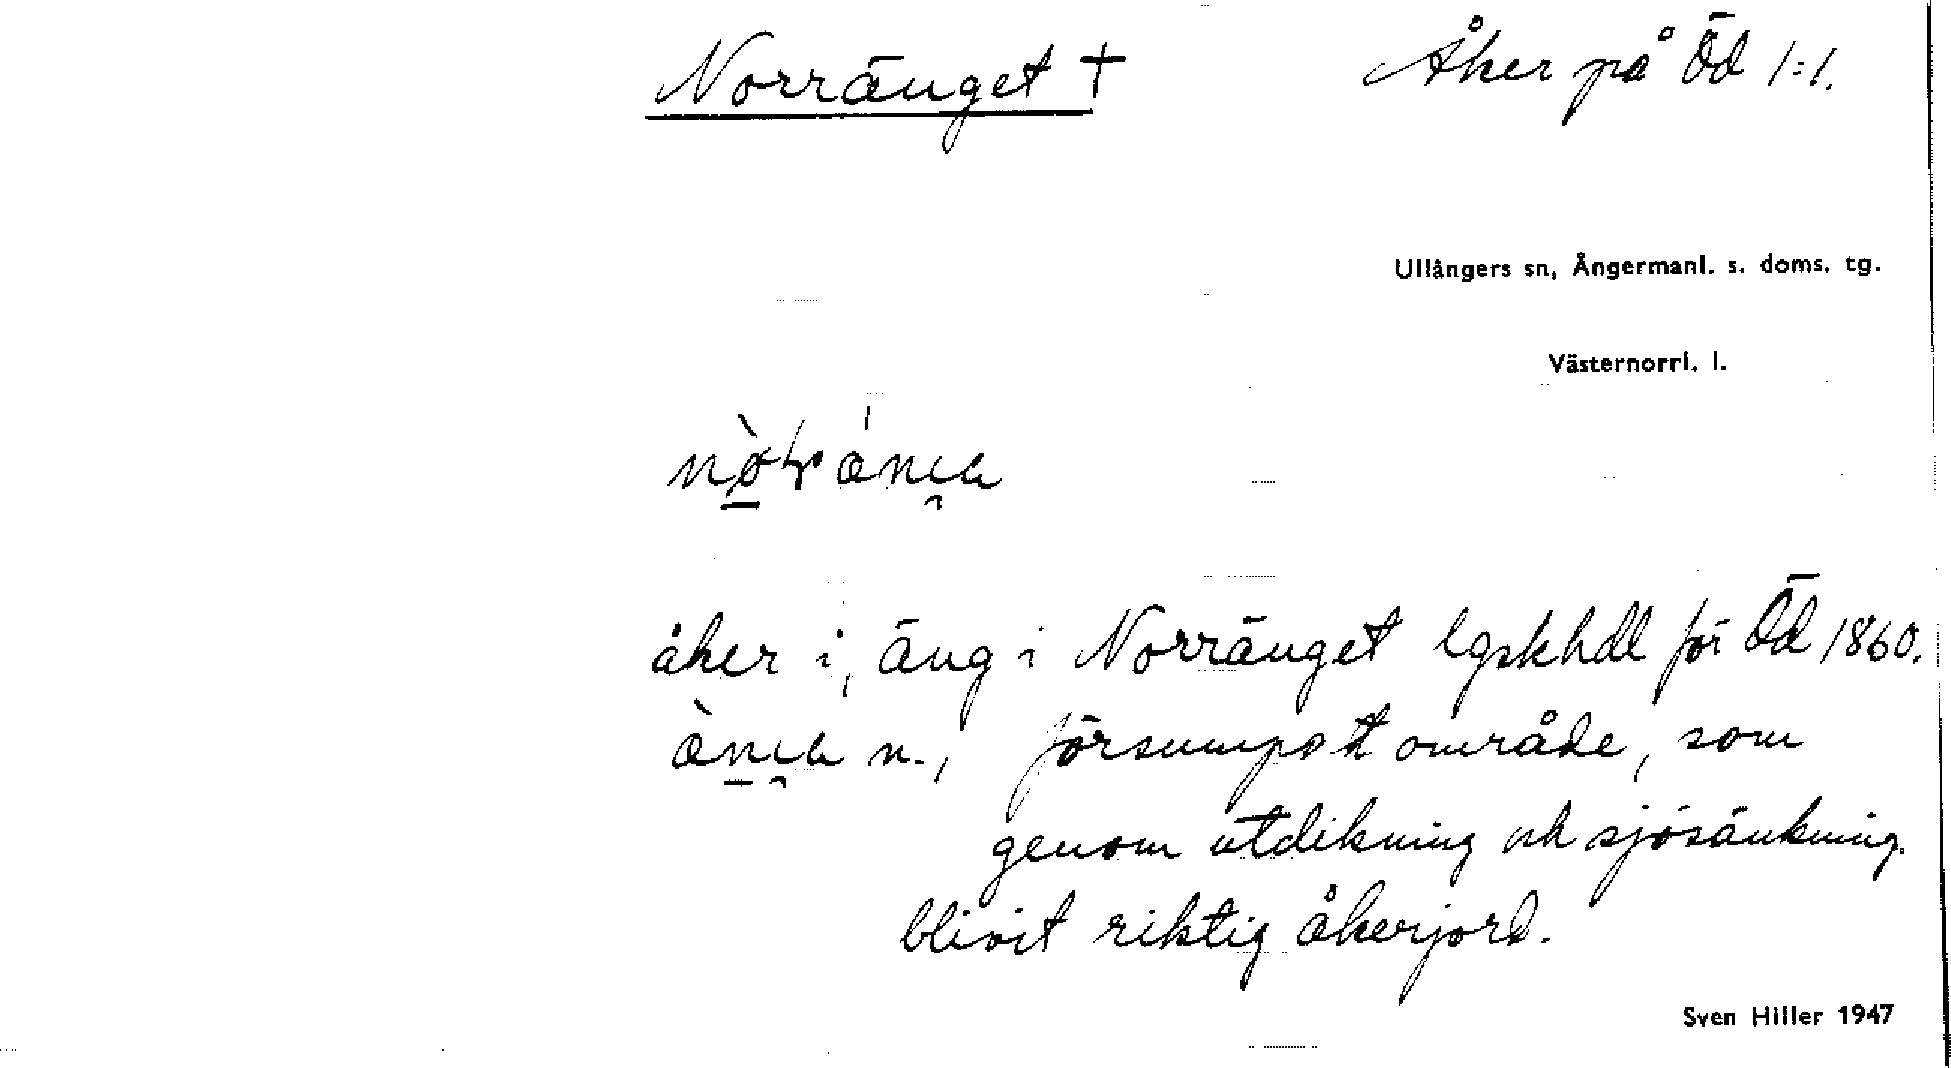 Norränget † Åker på Öd 1:1.
Ullångers sn, Ångermanl. s. doms. tg.
Västernorrl. l.
åker i, äng i Norränget lgskhdl för Öd 1860.
n., försumpat område, som
genom utdikning och sjösänkning
blivit riktig åkerjord.
Sven Hiller 1947